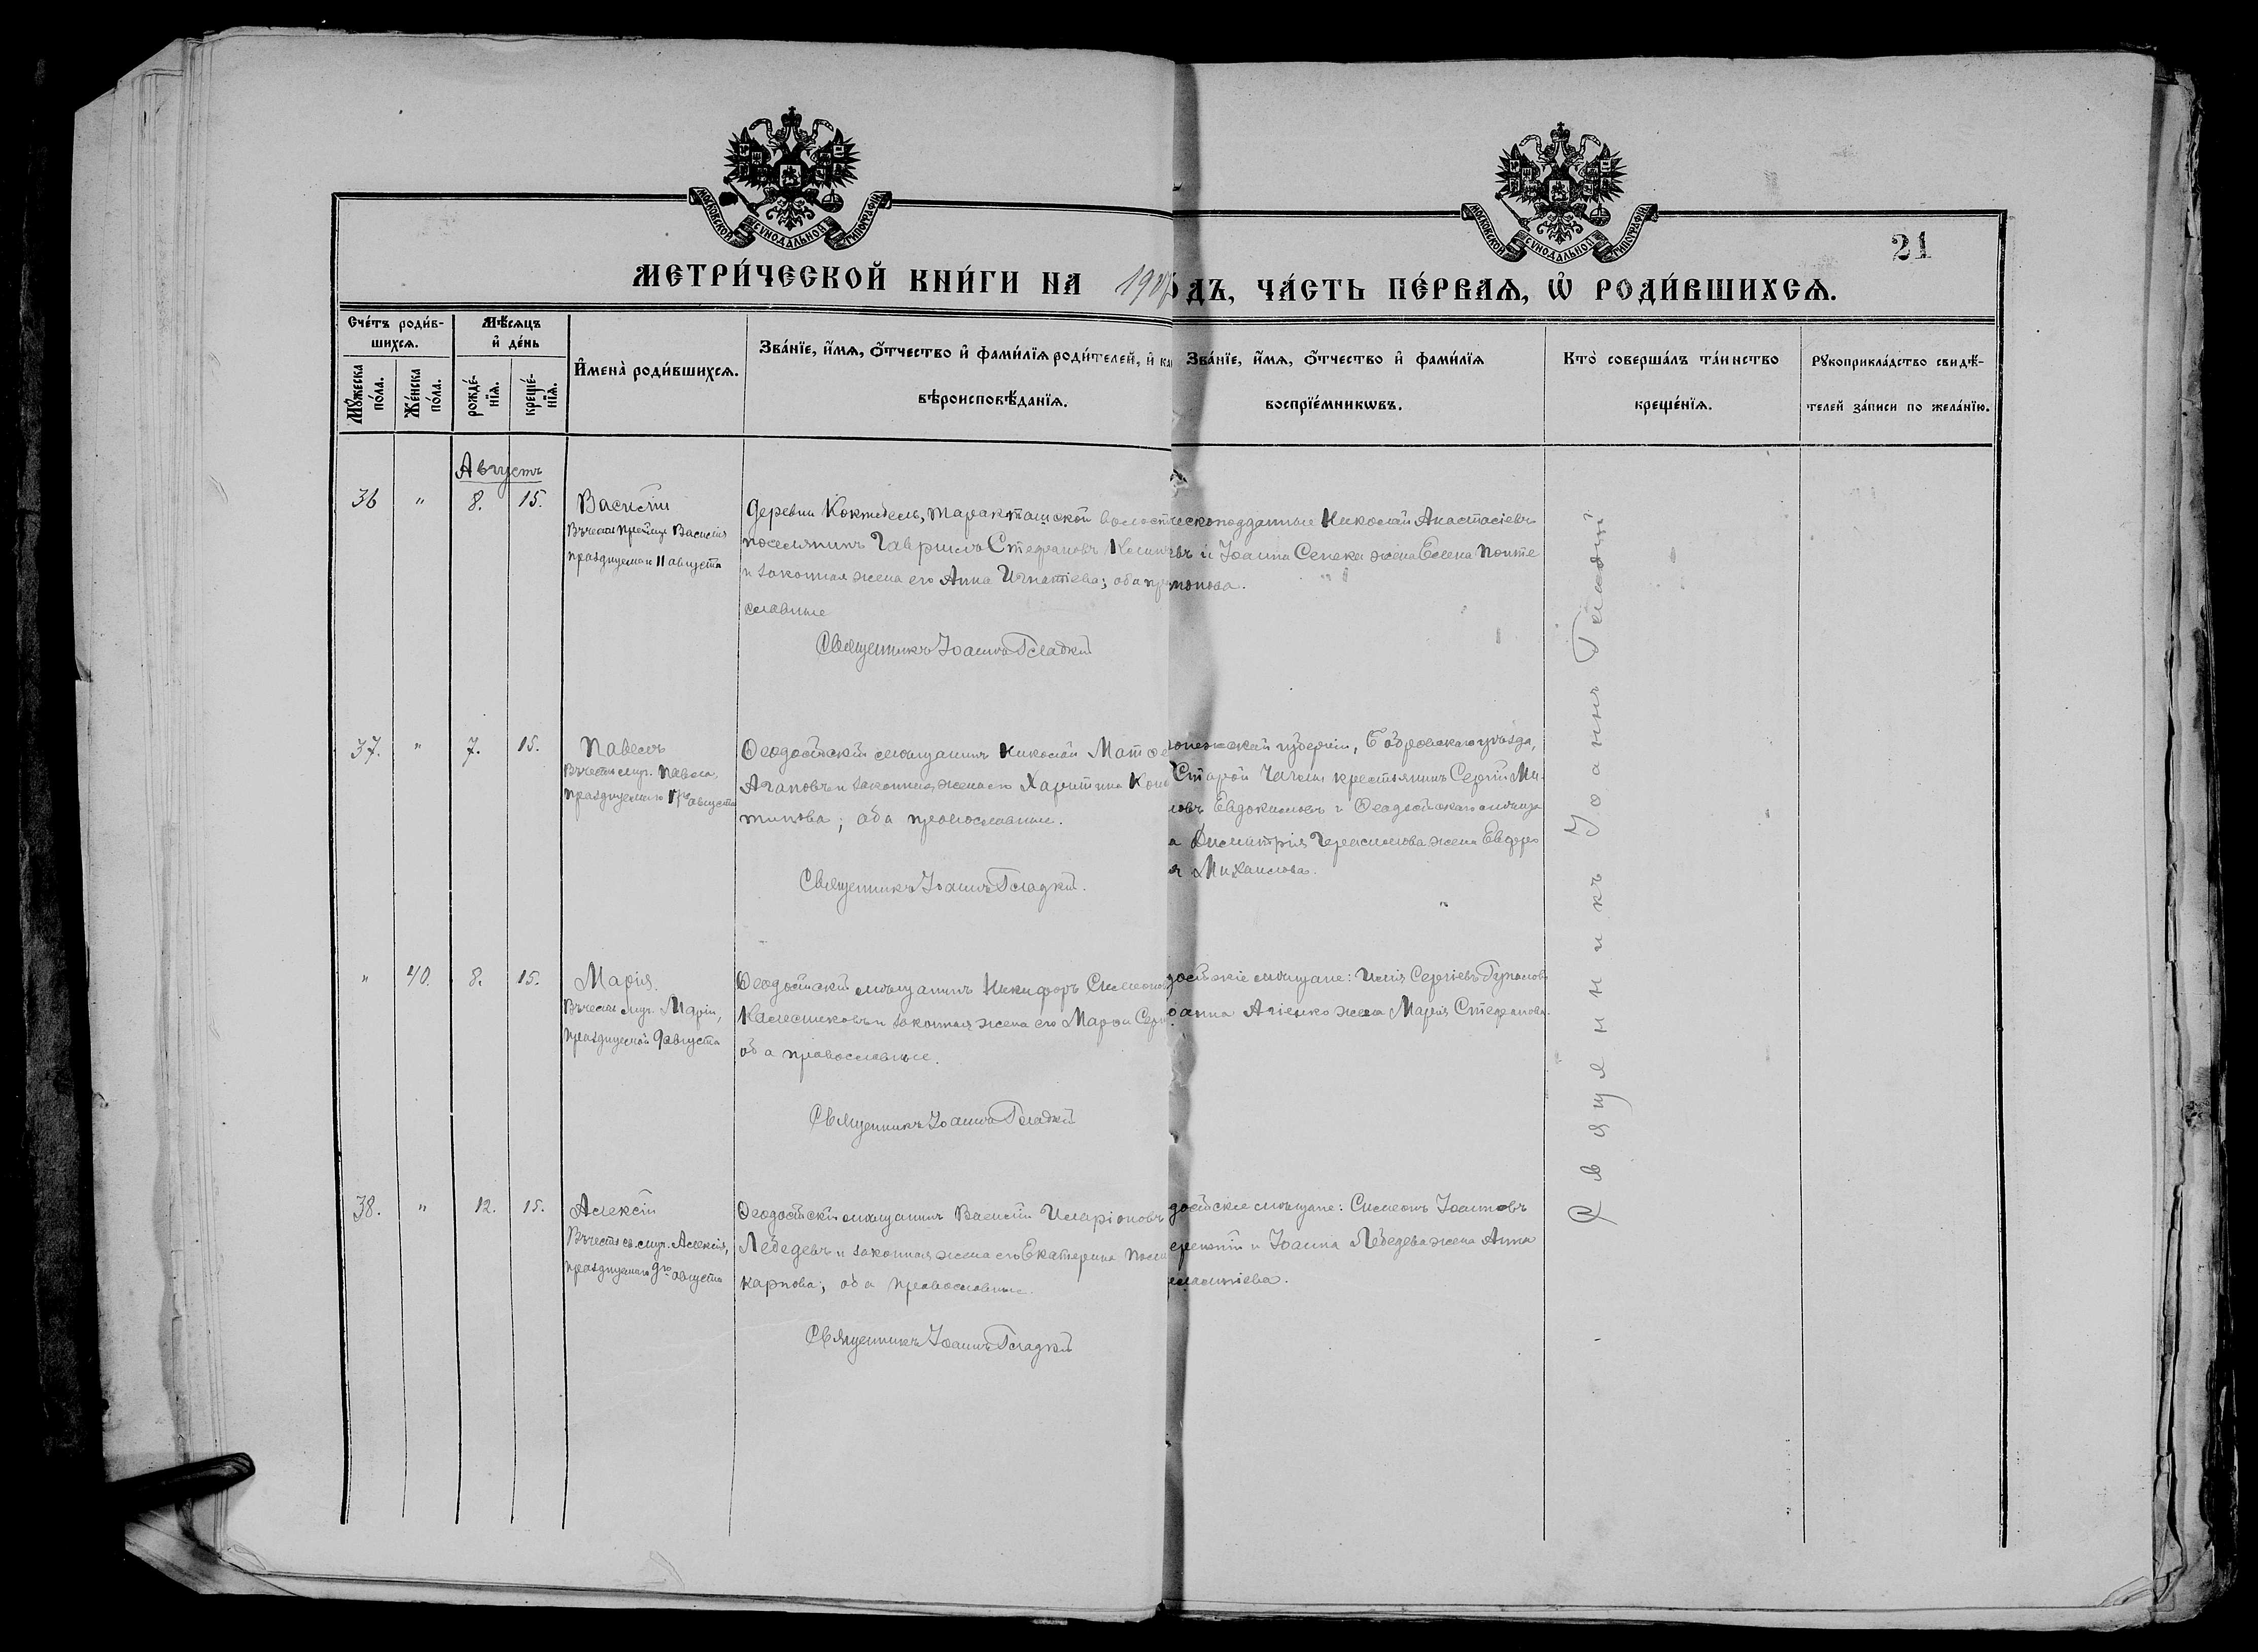 МОСКОВСКОЙ СѴНОДАЛЬНОЙ ТИПОГРАФІИ
МОСКОВСКОЙ СѴНОДАЛЬНОЙ ТИПОГРАФІИ
21
МЕТРИ́ЧЕСКОЙ КНИ́ГИ НА 190
ДЪ, ЧА́СТЬ ПЕ́РВАѦ, Ѡ҆ РОДИ́ВШИХСѦ.
Сче́тъ роди́в-
шихсѧ.
Мꙋ́жеска
по́ла.
Же́нска
по́ла.
Мѣ́сѧцъ
и҆ де́нь
рожде́-
нїѧ.
креще́-
нїѧ.
И҆мена̀ роди́вшихсѧ.
Зва́нїе, и҆́мѧ, ѻ҆́тчество и҆ фами́лїѧ роди́телей, и҆ ка
вѣроисповѣ́данїѧ.
Зва́нїе, и҆́мѧ, ѻ҆́тчество и҆ фами́лїѧ
воспрїе́мникѡвъ.
Кто̀ соверша́лъ та́инство
креще́нїѧ.
Рꙋкоприкла́дство свидѣ́-
телей за́писи по жела́нїю.
Августъ
36 " 8. 15. Василій
Въ честь Василія
празднуемаго 11 августа
деревни Коктебель, Таракташской волост
поселянинъ Гавріилъ Стефановъ
и законная жена его Анна Игнатіева; оба пра
славные
Священникъ Іоаннъ Гладкій
ческоподданные Николай Анастасіевъ
въ и Іоанна Сенеки жена Елена Понте
монова.
37. " 7. 15. Павелъ
Въ честь муч. Павла,
празднуемаго 17го августа
Ѳеодосійскій мѣщанинъ Николай Матѳе
Агаповъ и законная жена его Харитина Конс
тинова; оба православные.
Священникъ Іоаннъ Гладкій.
онежской губерніи, Бобровскаго уѣзда,
Старой Чиглы крестьянинъ Сергій Ми-
ловъ Евдокимовъ и Ѳеодосійскаго мѣщани
а Димитрія Герасимова жена Евфро
я Михаилова.
" 40. 8. 15. Марія.
Въ честь муч. Маріи,
празднуемой 9 августа
Ѳеодосійскій мѣщанинъ Никифоръ Симеонов
Калесниковъ и законная жена его Марѳа Серг
оба православные.
Священникъ Іоаннъ Гладкій
досійскіе мѣщане: Илія Сергіевъ
оанна Агіенко жена Марія Стефанова.
38. " 12. 15. Алексій
Въ честь св. муч. Алексія,
празднуемаго 9го августа
Ѳеодосійскій мѣщанинъ Василій Иларіоновъ
Лебедевъ и законная жена его Екатерина Поли
карпова; оба православные.
Священникъ Іоаннъ Гладкій
досійскіе мѣщане: Симеонъ Іоанновъ
и Іоанна Лебедева жена Анна
Священникъ Іоаннъ Гладкій